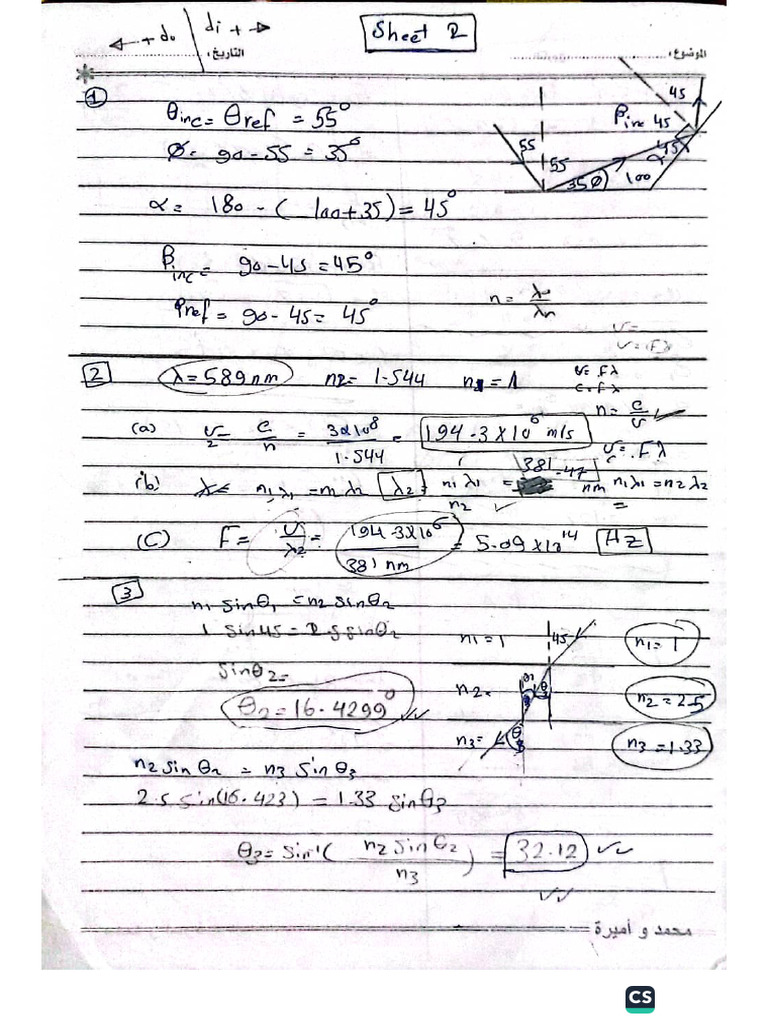 ← + do di + →
Sheet 2
التاريخ: الموضوع:
①
θinc = θref = 55°
Ø = 90 - 55 = 35°
α = 180 - ( 100+35) = 45°
βinc = 90 - 45 = 45°
βref = 90 - 45 = 45°
45
βinc 45
45
α
55
55
35 Ø
100
n = λ₀/λn
v =
v = Fλ
2
λ = 589 nm n2 = 1.544 n1 = 1
v = Fλ
c = Fλ
n = c/v
(a) v2 = c/n = 3x10⁸/1.544 = 194.3 x 10⁶ m/s
v = Fλ
(b) n1 λ1 = n2 λ2 λ2 = n1 λ1/n2 = 381.47 nm n1 λ1 = n2 λ2
=
(C) F = v/λ2 = 194.3x10⁶/381 nm = 5.09 x 10¹⁴ Hz
3
n1 sinθ1 = n2 sinθ2
1 sin45 = 2.5 sinθ2
sinθ2 =
θ2 = 16.4299°
n1 = 1 45 n1 = 1
n2 = θ2 θ n2 = 2.5
n3 = θ3 n3 = 1.33
n2 sin θ2 = n3 sin θ3
2.5 sin(16.423) = 1.33 sinθ3
θ3 = sin⁻¹( n2 sinθ2/n3 ) = 32.12
محمد و أميرة
CS